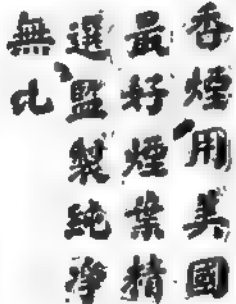 香煙用美國
最好煙葉精
選監製純淨
無比